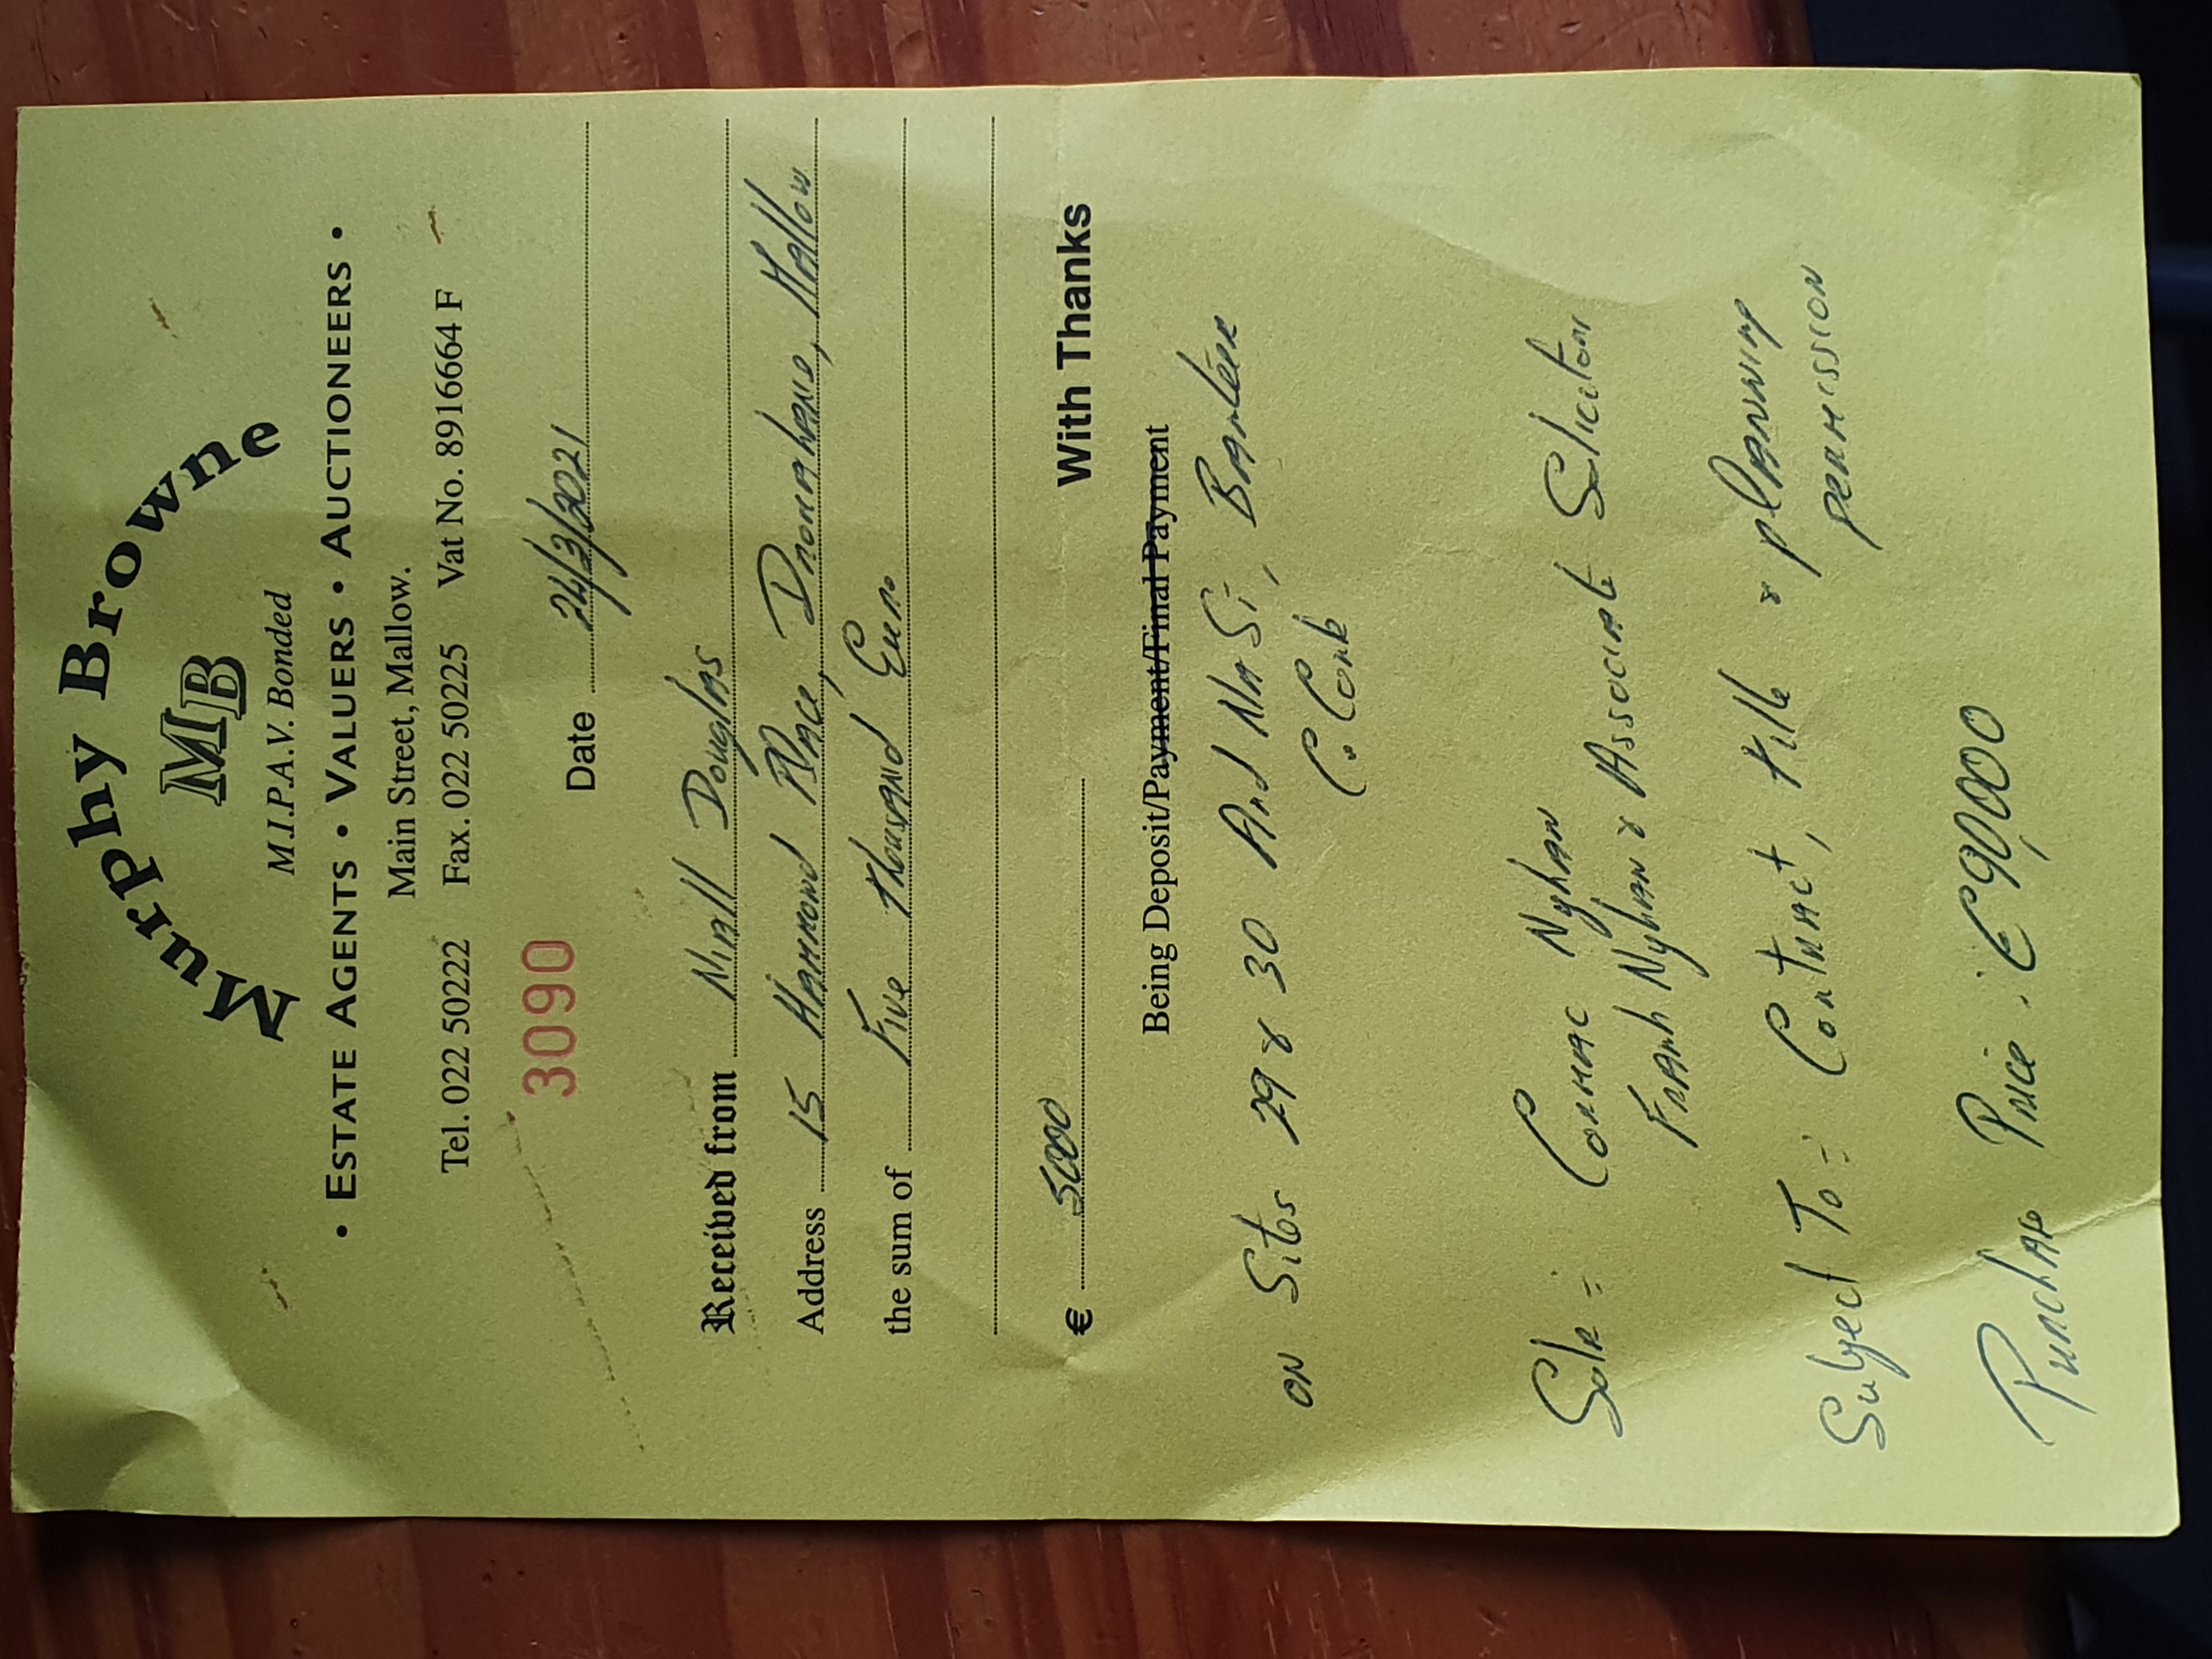 Murphy Browne
MB
M.I.P.A.V. Bonded
• ESTATE AGENTS • VALUERS • AUCTIONEERS •
Main Street, Mallow.
Tel. 022 50222 Fax. 022 50225 Vat No. 8916664 F
3090 Date 24/3/2021
Received from Niall Douglas
Address 15 Hammond Place, Dromahane, Mallow
the sum of Five thousand Euro
€ 5000 With Thanks
Being Deposit/Payment/Final Payment
on Sites 29 & 30 Ard Na Sí, Banteer
C. Cork
Sols :- Cormac Nyhan
Frank Nyhan & Associate Solicitors
Subject To :- Contract, title & planning
permission
Purchase Price : €90,000